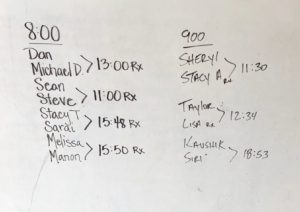 8:00
Dan
Michael D. > 13:00 Rx
Sean
Steve > 11:00 Rx
Stacy T.
Sarai > 15:48 Rx
Melissa
Manon > 15:50 Rx
900
SHERYL
STACY A RX > 11:30
Taylor
LISA RX > 12:34
KAUSHIK
SIRI > 18:53